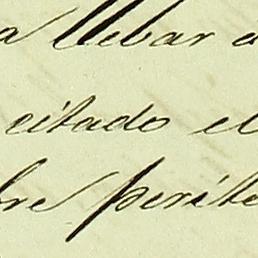 a llebar a
citado el
bre perite